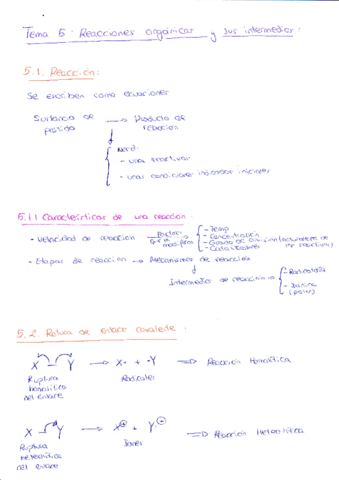 Tema 5: Reacciones orgánicas y sus intermedios:
5.1. Reacción:
Se escriben como ecuaciones
Sustancia de partida → Producto de reacción
Nec:
- unos reactivos
- unas condiciones iniciales
5.1.1 Características de una reacción:
- Velocidad de reacción → Factores q la modifican
- Temp
- Concentración
- Grado de división
- Catalizadores
- Etapas de reacción → Mecanismos de reacción
Intermedios de reacción
- Radicales
- Iónico (polar)
5.2. Rotura de enlace covalente:
X Y → X• + •Y ⇒ Reacción Homolítica
Ruptura homolítica del enlace
Radicales
X Y → X⊕ + Y⊖ ⇒ Reacción Heterolítica
Ruptura Heterolítica del enlace
Iones